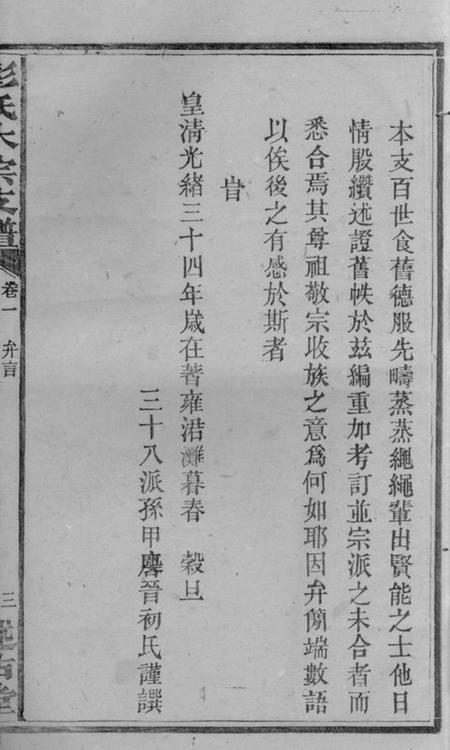 本支百世食舊德服先疇蒸蒸繩繩輩出賢能之士他日
情殷纘述證舊帙於茲編重加考訂並宗派之未合者而
悉合焉其尊祖敬宗收族之意為何如耶因弁簡端數語
以俟後之有感於斯者
旹
皇清光緒三十四年歲在著雍涒灘暮春 穀旦
三十八派孫甲麐晉初氏謹譔
彭氏大宗支譜
卷一 弁言
三
堂